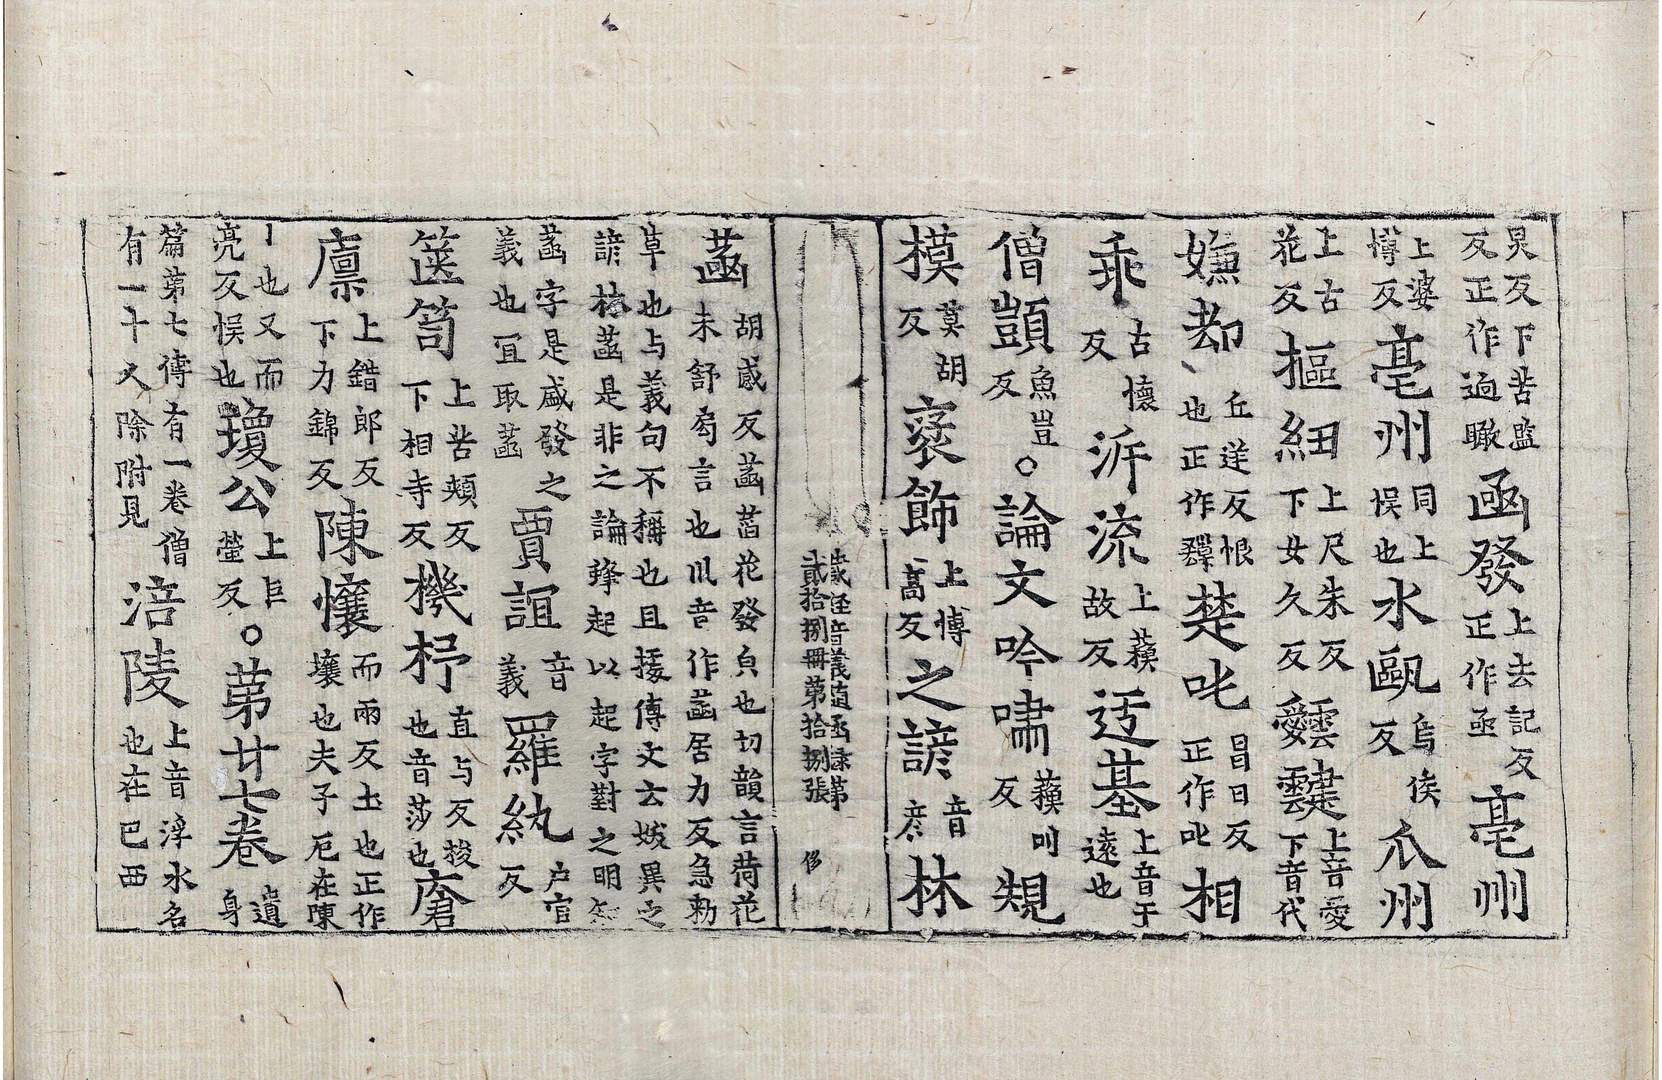 炅反下苦監反正作迥瞰 函發上去記反正作亟 亳州
上婆博反 亳州同上悮也 水甌烏侯反 瓜州
上古花反 摳紐上尺朱反下女久反 靉靆上音愛下音代
嫌却丘逆反恨也正作𨻶 楚叱昌日反正作叱 相
乖古懷反 泝流上蘓故反 迃墓上音于遠也
僧顗魚豈反○論文 吟嘯蘓叫反 規
模莫胡反 裦飾上博高反 之諺音彦 林
藏涇音義隨函録第貳拾捌冊第拾捌張
菡胡感反菡萏花發皃也切韻言荷花未舒曷言也川音作菡居力反急勑
草也与義句不稱也且援傳文云娀異之諺林菡是非之論鋒起以起字對之明知
菡字是咸發之義也冝取菡 賈誼音義 羅紈户官反
篋笥上苦頰反下相寺反 機杼直与反梭也音莎也 倉
廪上錯郎反下力錦反 陳懷而兩反土也正作壤也夫子厄在陳
丨也又而亮反悮也 瓊公上巨營反○苐廿七卷遺身
篇第七傳有一卷僧有一十久除附見 涪陵上音浮水名也在巴西